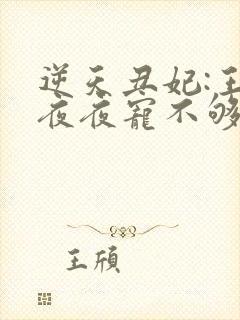 逆天丑妃:王
夜夜宠不够
王颀